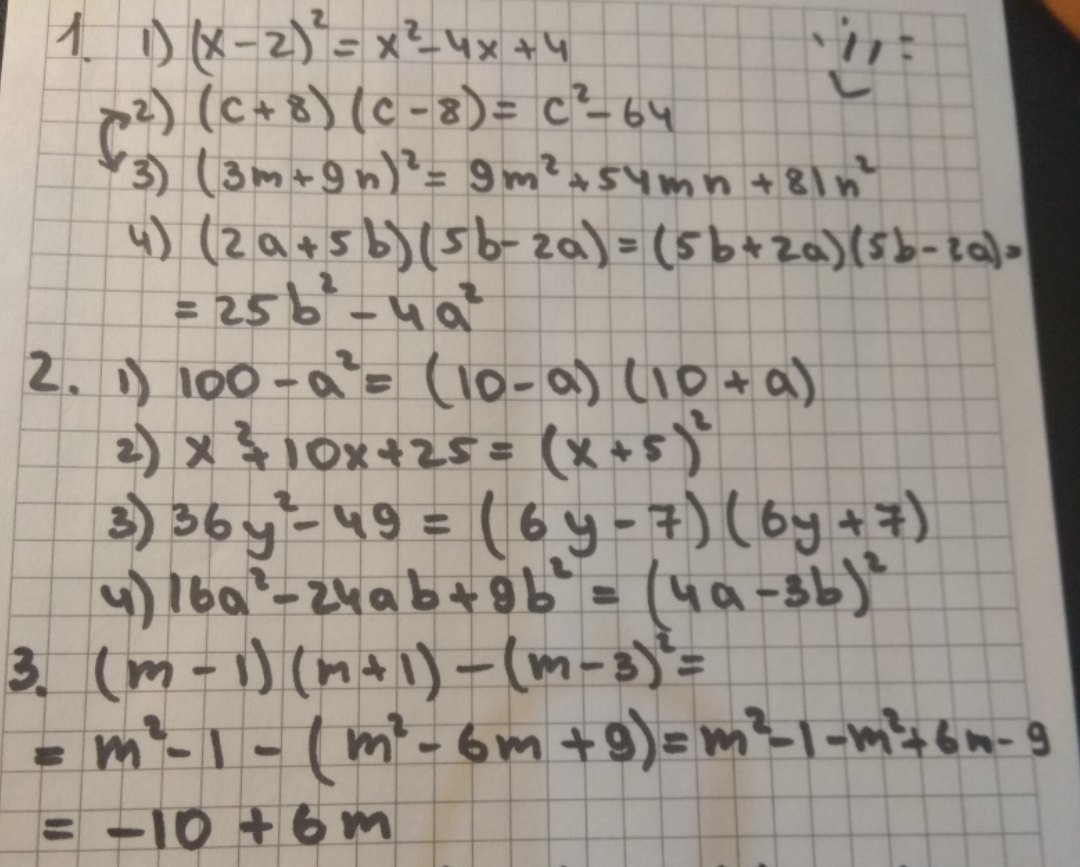 1. 1) (x-2)² = x²-4x+4
2) (c+8)(c-8) = c²-64
3) (3m+9n)² = 9m²+54mn+81n²
4) (2a+5b)(5b-2a) = (5b+2a)(5b-2a) =
= 25b²-4a²
2. 1) 100-a² = (10-a)(10+a)
2) x²+10x+25 = (x+5)²
3) 36y²-49 = (6y-7)(6y+7)
4) 16a²-24ab+9b² = (4a-3b)²
3. (m-1)(m+1)-(m-3)² =
= m²-1-(m²-6m+9) = m²-1-m²+6m-9
= -10+6m